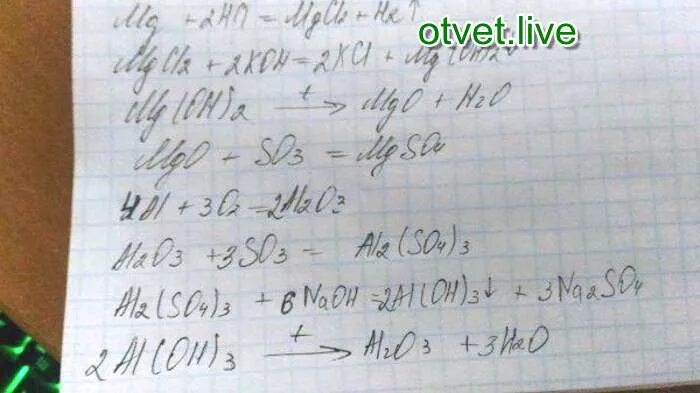 Mg + 2HCl = MgCl2 + H2↑
otvet.live
MgCl2 + 2KOH = 2KCl + Mg(OH)2↓
Mg(OH)2 —t→ MgO + H2O
MgO + SO3 = MgSO4
4Al + 3O2 = 2Al2O3
Al2O3 + 3SO3 = Al2(SO4)3
Al2(SO4)3 + 6NaOH = 2Al(OH)3↓ + 3Na2SO4
2Al(OH)3 —t→ Al2O3 + 3H2O